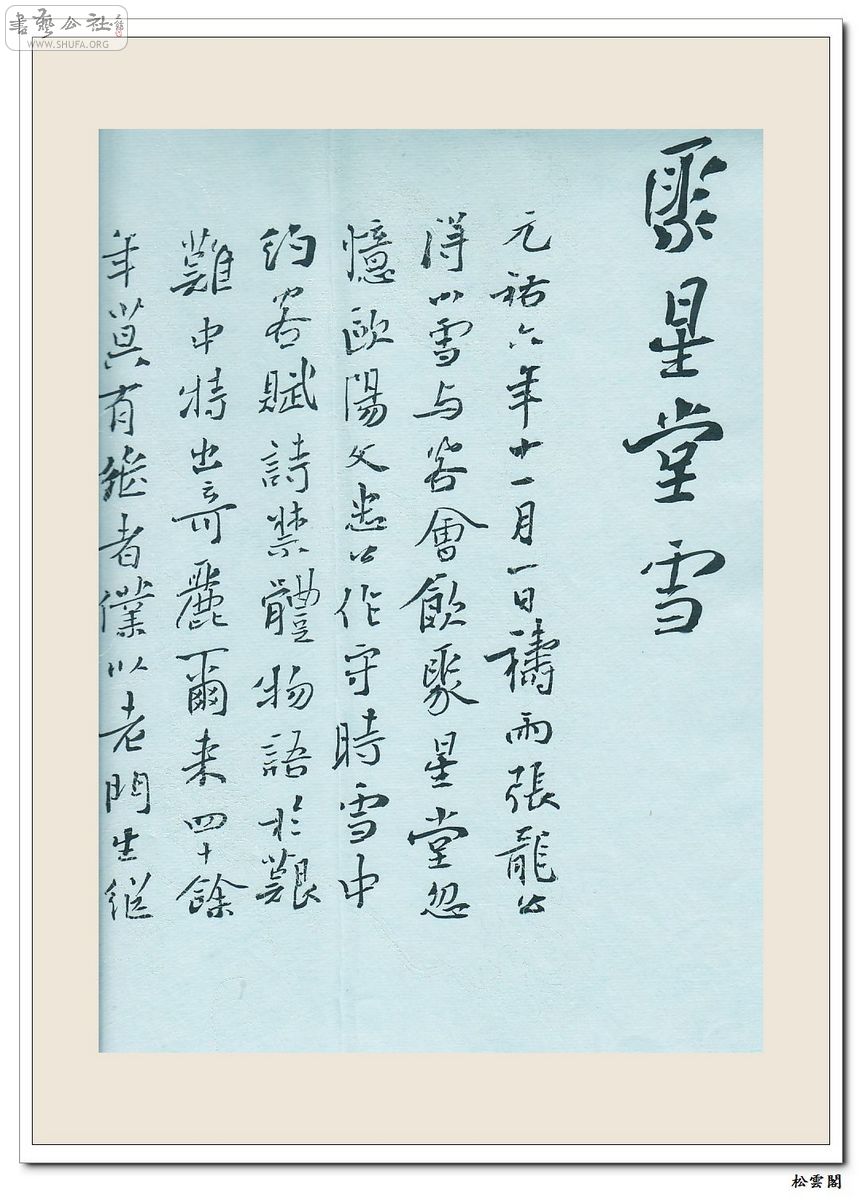 書藝公社
WWW.SHUFA.ORG
聚星堂雪
元祐六年十一月一日禱雨張龍公
得小雪与客會飲聚星堂忽
憶歐陽文忠公作守時雪中
約客賦詩禁體物語於艱
難中特出奇麗爾来四十餘
年莫有継者僕以老門生継
松雲閣